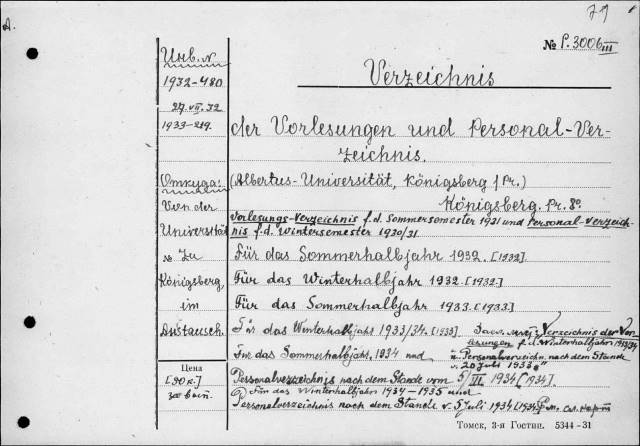 79
A.
№ P.3006 III
Инв. №
Verzeichnis
1932-480
27.VII.32
1933-219.
der Vorlesungen und Personal-Ver-
zeichnis.
Откуда:
(Albertus-Universität, Königsberg / Pr.)
Von der
Königsberg. Pr. 8o.
Universität
Vorlesungs-Verzeichnis f.d. Sommersemester 1931 und Personal-Verzeich-
nis f.d. Wintersemester 1930/31.
zu
Für das Sommerhalbjahr 1932. [1932]
Königsberg,
Für das Winterhalbjahr 1932. [1932.]
im
Für das Sommerhalbjahr 1933. [1933.]
Austausch.
Für das Winterhalbjahr 1933/34. [1933]
Verzeichnis der Vor-
lesungen f.d. Winterhalbjahr 1933/34
Für das Sommerhalbjahr, 1934 und
u. Personalverzeichn. nach dem Stande
v. 20 Juli 1933."
Цена
Personalverzeichnis nach dem Stande vom 5/III 1934 [1934].
[90 к.]
Für das Winterhalbjahr 1934-1935 und
Personalverzeichnis nach dem Stande v. 5 Juli 1934 [1934]
Томск, 3-я Гостип. 5344-31